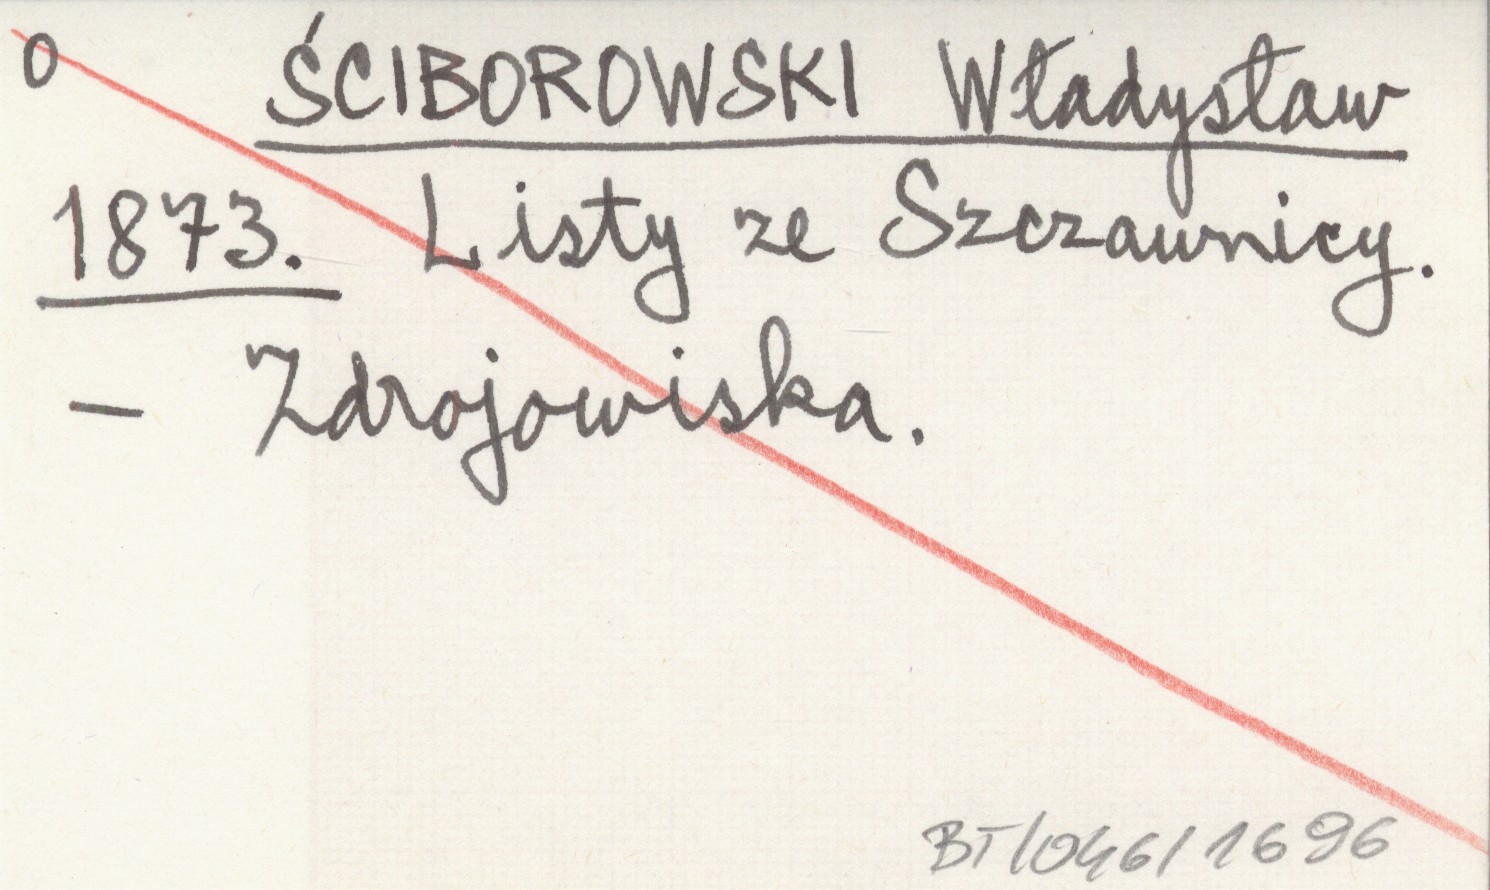 0 ŚCIBOROWSKI Władysław
1873. Listy ze Szczawnicy.
— Zdrojowiska.
BT/046/1696